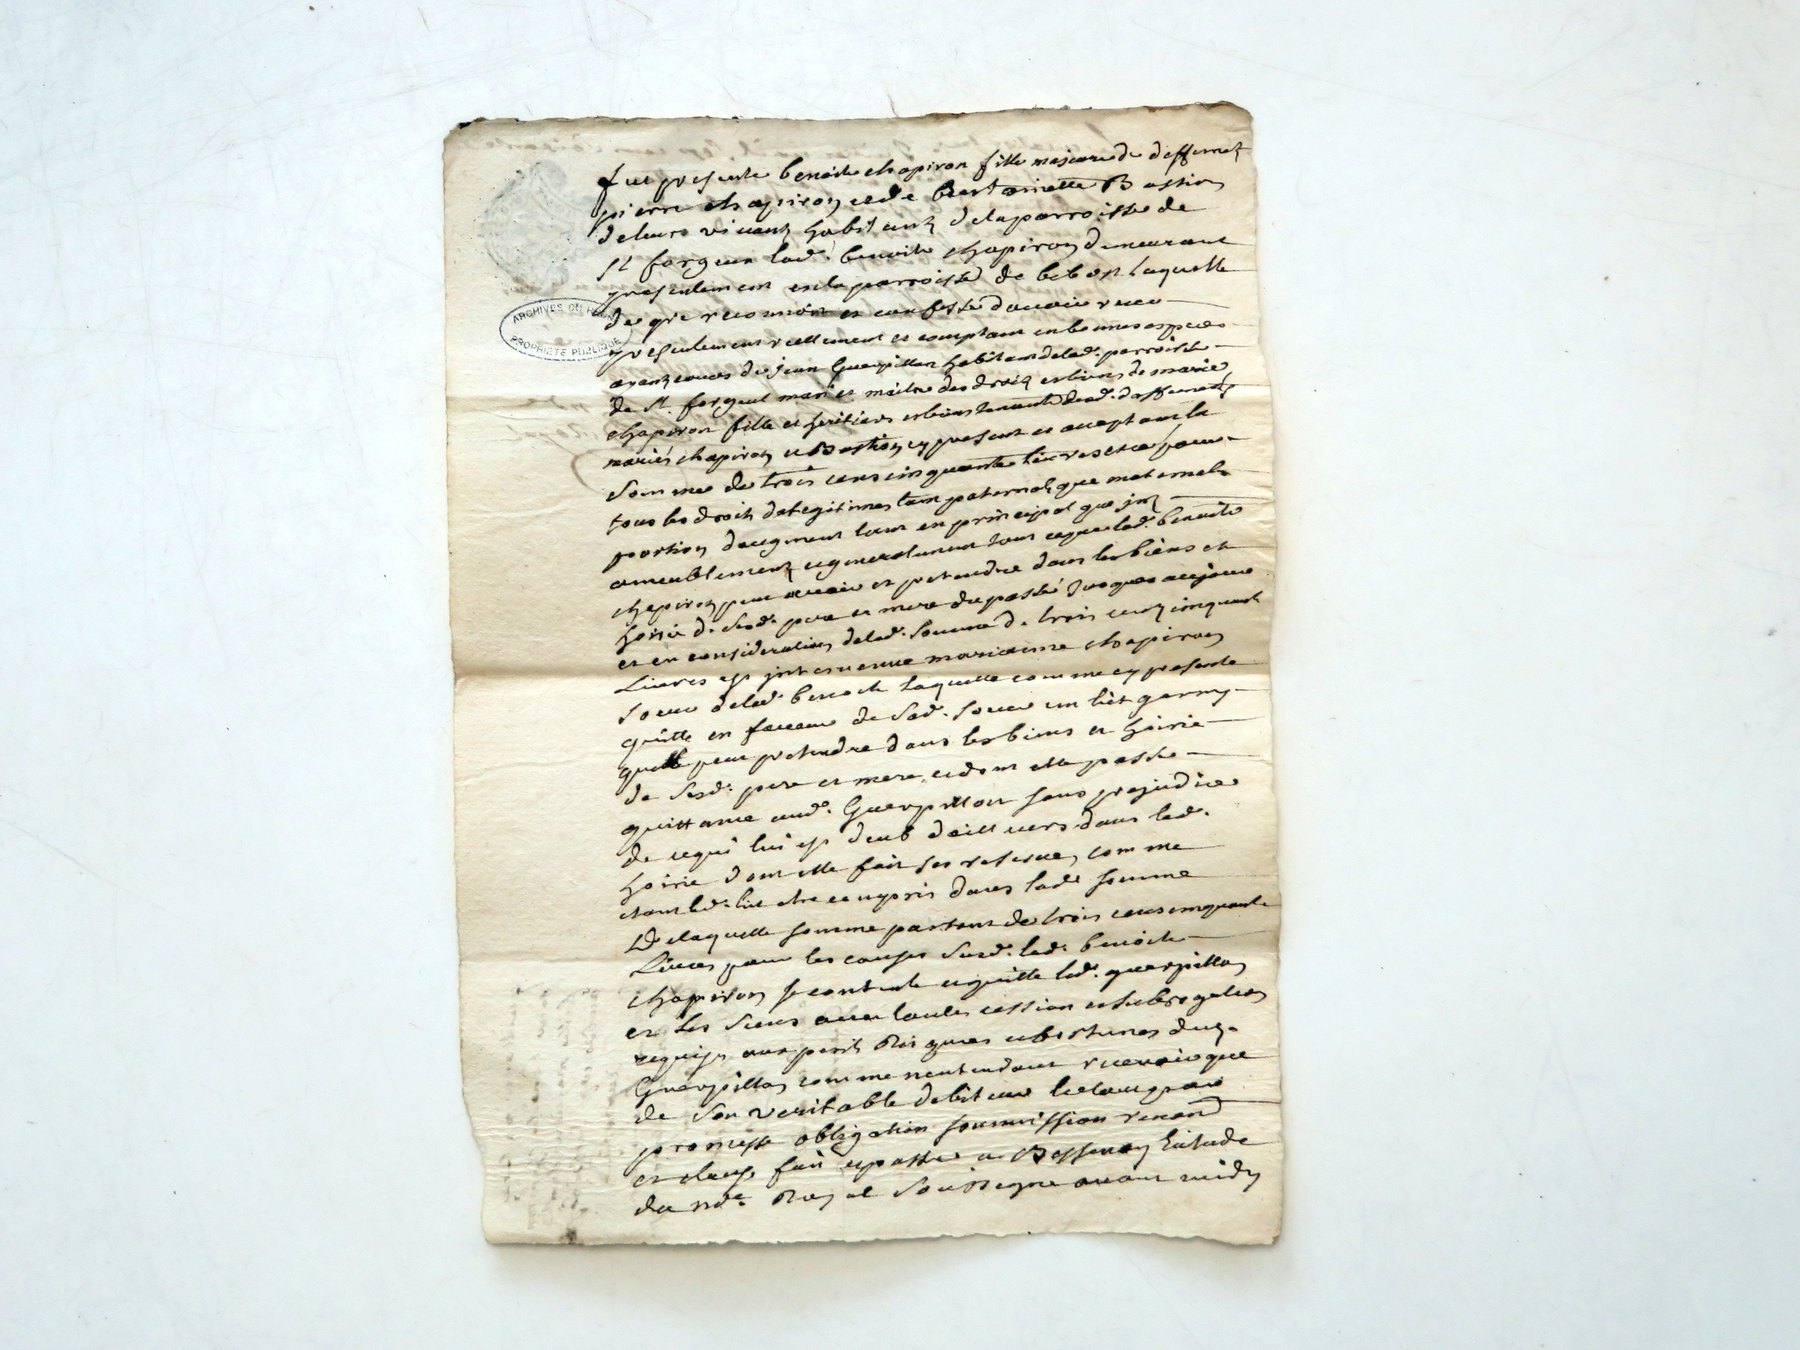 fut presente benoite chapiron fille majeure de deffunctz
pierre chapiron et de Bastion
de leurs vivants habitants de la parroisse de
St forgeux lad. benoite chapiron demeurant
presentement en la parroisse de laquelle
de gré reconnoit et confesse d'avoir receu
presentement reellement et comptant en bonnes especes
ayant cours de jean Guerpillon habitant de lad. parroisse
de St. forgeul mari et maitre des droits et biens de marie
chapiron fille et heritiere et bien tenante desd. deffuncts
mariés chapiron et Bastion cy present et acceptant la
Somme de trois cens cinquante livres et ce pour
tous les droits de legitimes tant paternels que maternels
portion d'augment tant en principal que
ameublements et generalement tout ce que lad. benoite
chapiron peut avoir et pretendre dans les biens et
hoirie de Sesd. pere et mere du passé jusques aujourd
et en consideration de lad. Somme de trois cents cinquante
Livres est intervenue marianne chapiron
Soeur de lad. benoite laquelle comme cy presente
quitte en faveur de Sad. Soeur un lict garny
quelle peut pretendre dans les biens et hoirie
de Sesd. pere et mere et dont elle passe
quittance aud. Guerpillon sans prejudice
de ce qui lui est deub d'ailleurs dans lad.
hoirie dont elle fait ses reserves comme
etant led. lict compris dans lad. somme
De laquelle somme partant de trois cens cinquante
Livres pour les causes Susd. lad. benoite
chapiron se contente et quitte led. guerpillon
et les Siens avec toutes cession et subrogation
requises aux peril Risques et fortunes dud.
Guerpillon comme nentendant recevoir que
de son veritable debiteur le tout par
promesse obligation soummission renond
et clauses fait et passé a Bessenay Estude
du nore. Royal Soussigne avant midy
ARCHIVES DU RHÔNE
PROPRIETE PUBLIQUE